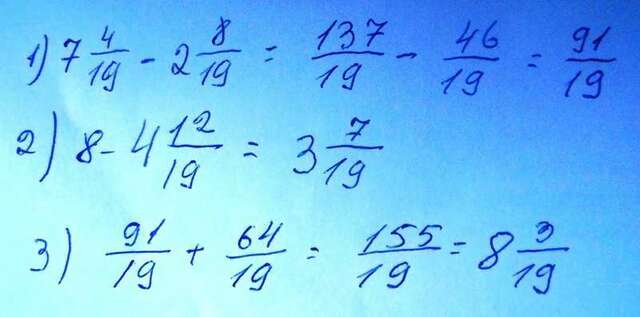 1) 7 4/19 - 2 8/19 = 137/19 - 46/19 = 91/19
2) 8 - 4 12/19 = 3 7/19
3) 91/19 + 64/19 = 155/19 = 8 3/19